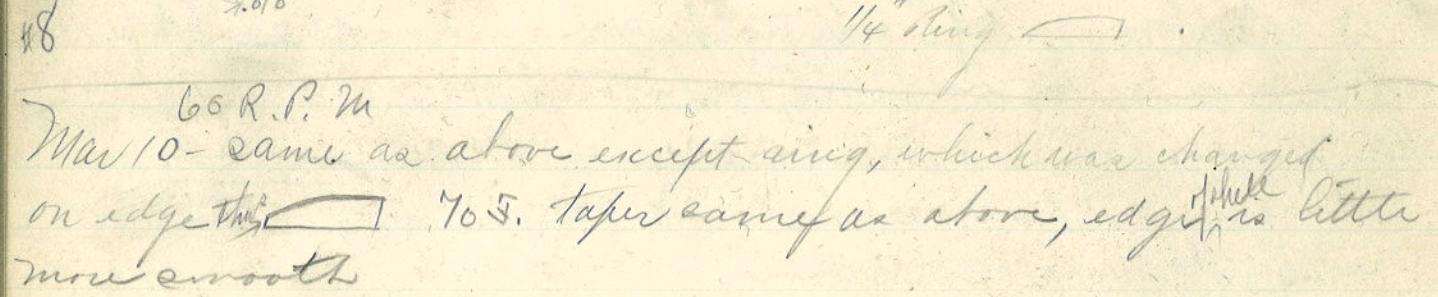 #8 1/4" ring
60 R.P.M
Mar 10 - same as above except ring, which was changed
on edge thus 70 taper same as above, edge of shell is little
more smooth